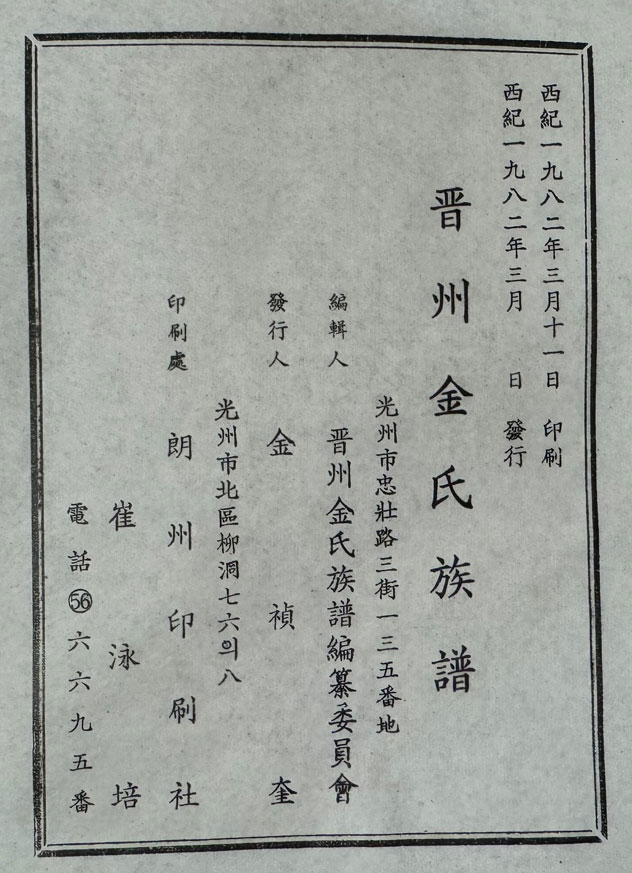 西紀一九八二年三月十一日 印刷
西紀一九八二年三月 日 發行
晋州金氏族譜
光州市忠壯路三街一三五番地
編輯人 晋州金氏族譜編纂委員會
發行人 金禎奎
光州市北區柳洞七六의八
印刷處 朗州印刷社
崔泳培
電話56六六九五番